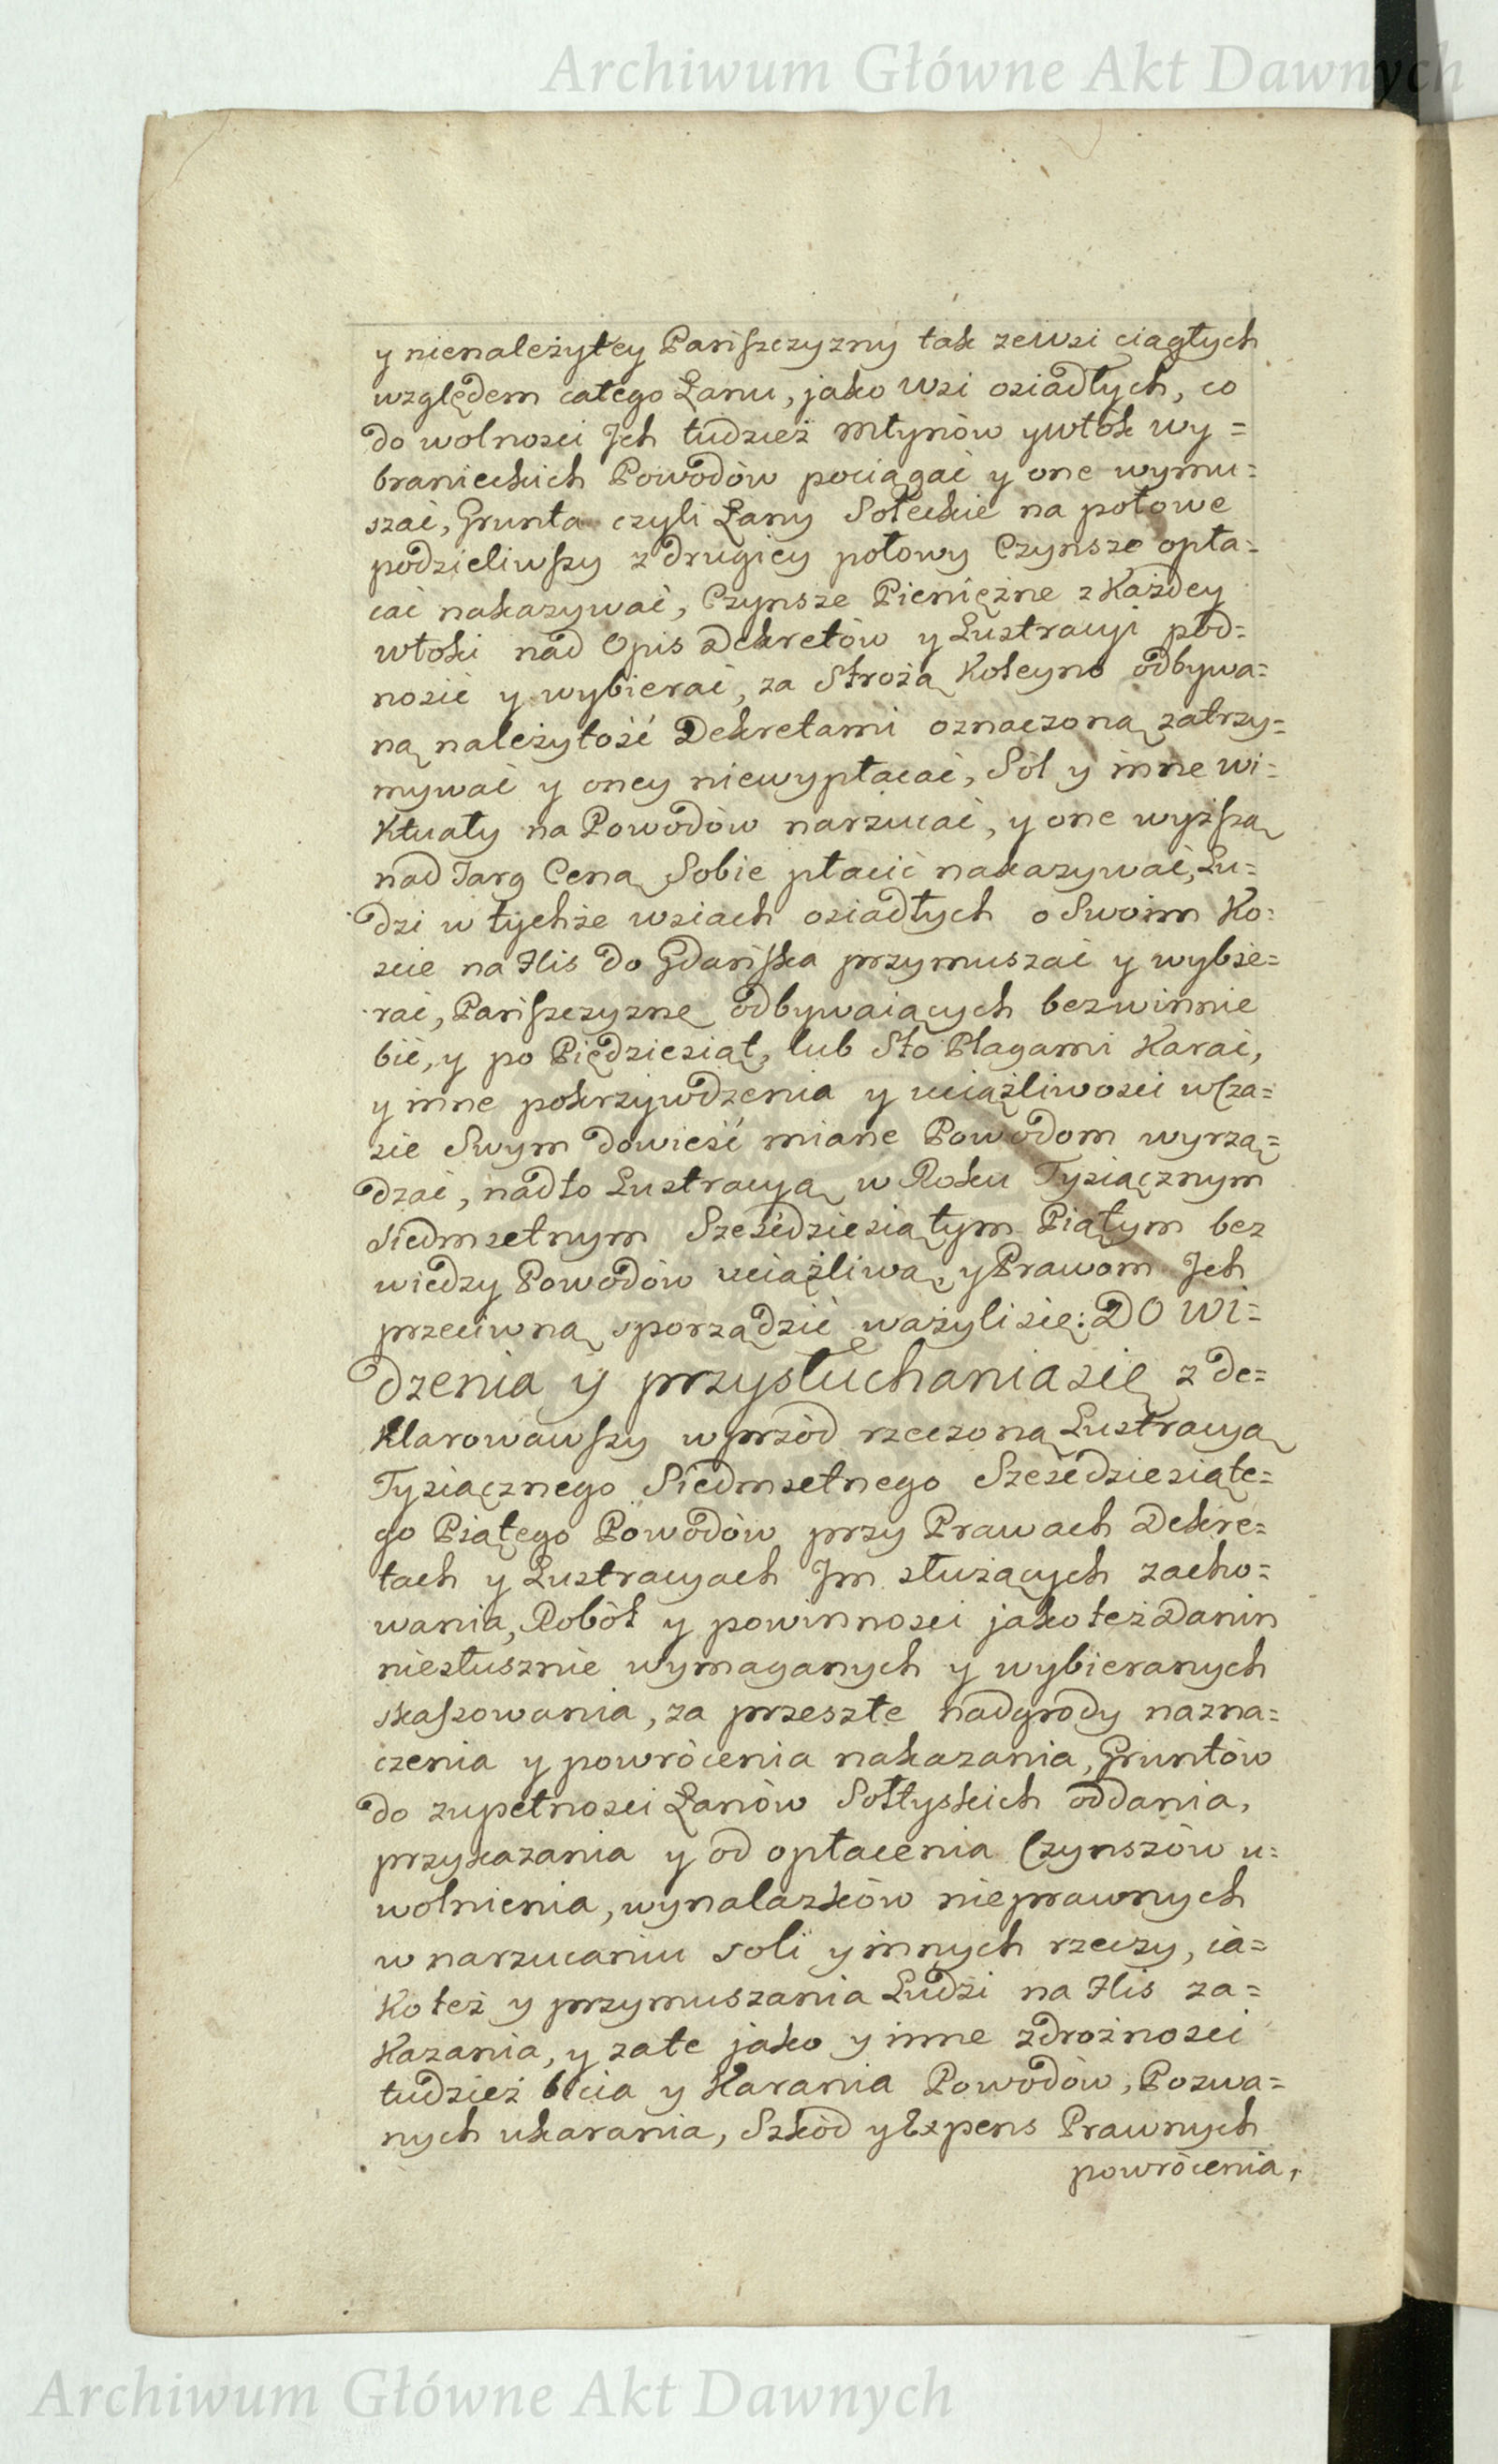 Archiwum Główne Akt Dawnych
y nienależytey Pańszczyzny tak ze wsi ciągłych
względem całego Łanu, jako wsi osiadłych, co
do wolnosci Jch tudzież Młynów y włók wy=
branieckich Powodów pociągać y one wymu=
szać, Grunta czyli Łany Sołeckie na połowe
podzieliwszy z drugiey połowy Czynsze opła=
cać nakazywać, Czynsze Pieniężne z Każdey
włoki nad Opis Dekretów y Lustracyi pod=
nosić y wybierać, za Strożą Koleyno odbywa=
ną należytość Dekretami oznaczoną zatrzy=
mywać y oney niewypłacać, Sól y inne wi=
Ktuały na Powodów narzucać, y one wyższą
nad Targ Ceną Sobie płacić nakazywać, Lu=
dzi w tychże wsiach osiadłych o Swoim Ko=
scie na Flis do Gdańska przymuszać y wybie=
rać, Pańszczyznę odbywaiących bezwinnie
bić, y po Pięćdziesiąt, lub Sto Plagami Karać,
y inne pokrzywdzenia y uciążliwosci w Cza=
sie Swym dowieść miane Powodom wyrzą=
dzać, nadto Lustracyą w Roku Tysiącznym
Siedmsetnym Sześćdziesiątym Piątym bez
wiedzy Powodów uciążliwą, y Prawom Jch
przeciwną sporządzić ważyli się: DO Wi=
dzenia y przysłuchania się z de=
Klarowawszy wprzód rzeczoną Lustracyą
Tysiącznego Siedmsetnego Sześćdziesiąte=
go Piątego Powodów przy Prawach Dekre=
tach y Lustracyach Jm służących zacho=
wania, Robót y powinnosci jako też Danin
niesłusznie wymaganych y wybieranych
skassowania, za przeszłe nadgrody nazna=
czenia y powrócenia nakazania, Gruntów
do zupełnosci Łanów Sołtyskich oddania,
przykazania y od opłacenia Czynszów u=
wolnienia, wynalazków nieprawnych
w narzucaniu soli y innych rzeczy, ia=
Ko też y przymuszania Ludzi na Flis za=
Kazania, y za te jako y inne zdrożnosci
tudzież bicia y Karania Powodów, Pozwa=
nych ukarania, Szkód y Expens Prawnych
powrócenia,
Archiwum Główne Akt Dawnych